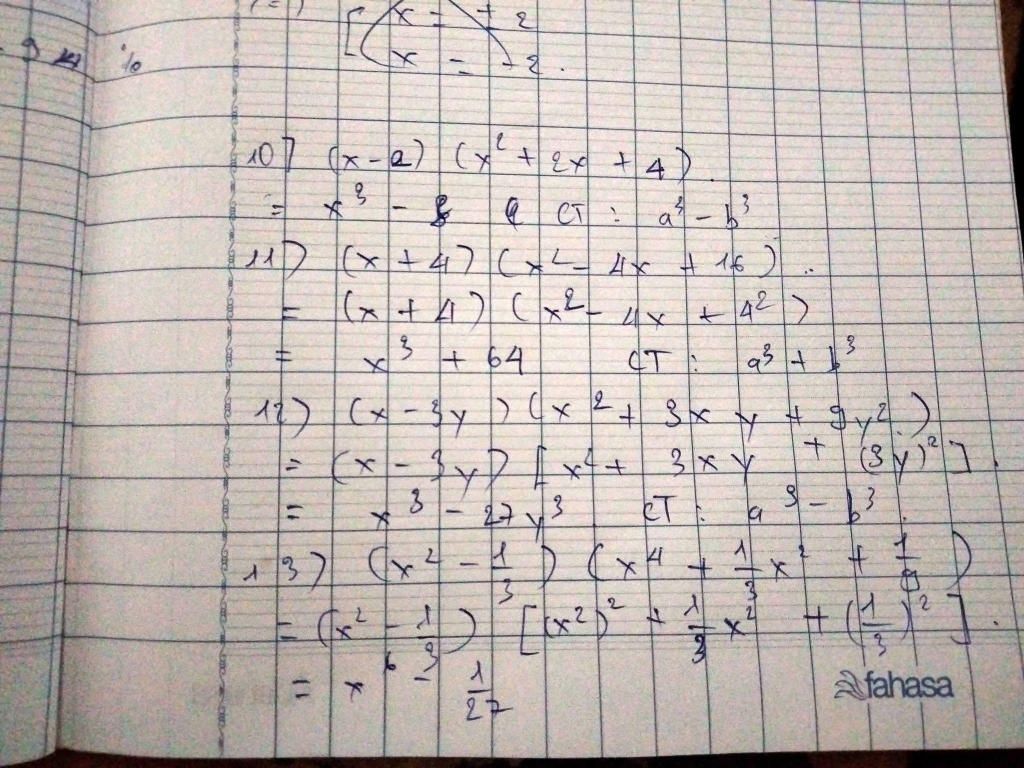 x = + 2
x = - 2.
%
10] (x - 2) (x² + 2x + 4).
= x³ - 8 CT : a³ - b³
11) (x + 4) (x² - 4x + 16).
= (x + 4) (x² - 4x + 4²)
= x³ + 64 CT : a³ + b³
12) (x - 3y) (x² + 3xy + 9y²)
= (x - 3y) [x² + 3xy + (3y)²].
= x³ - 27y³ CT : a³ - b³.
13) (x² - 1/3) (x⁴ + 1/3 x² + 1/9)
= (x² - 1/3) [(x²)² + 1/3 x² + (1/3)²].
= x⁶ - 1/27
fahasa